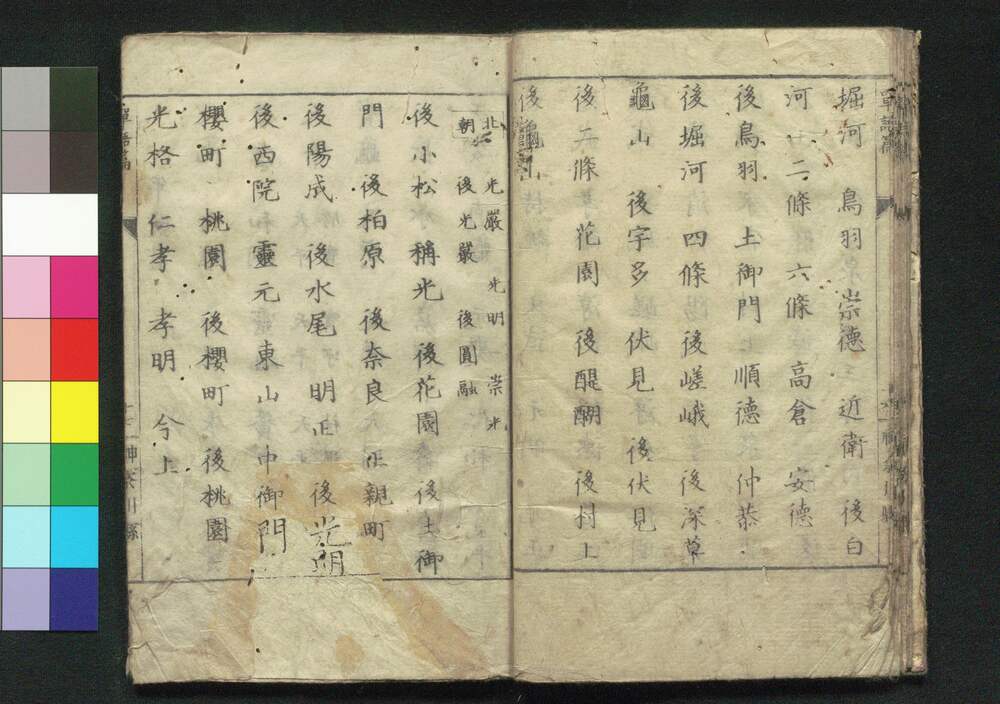 堀河 鳥羽 崇德 近衛 後白
河 二條 六條 高倉 安德
後鳥羽 土御門 順德 仲恭
後堀河 四條 後嵯峨 後深草
龜山 後宇多 伏見 後伏見
後二條 花園 後醍醐 後村上
後龜山
北朝 光嚴 光明 崇光
後光嚴 後圓融
後小松 稱光 後花園 後土御
門 後柏原 後奈良 正親町
後陽成 後水尾 明正 後光明
後西院 靈元 東山 中御門
櫻町 桃園 後櫻町 後桃園
光格 仁孝 孝明 今上
單語篇
神奈川縣